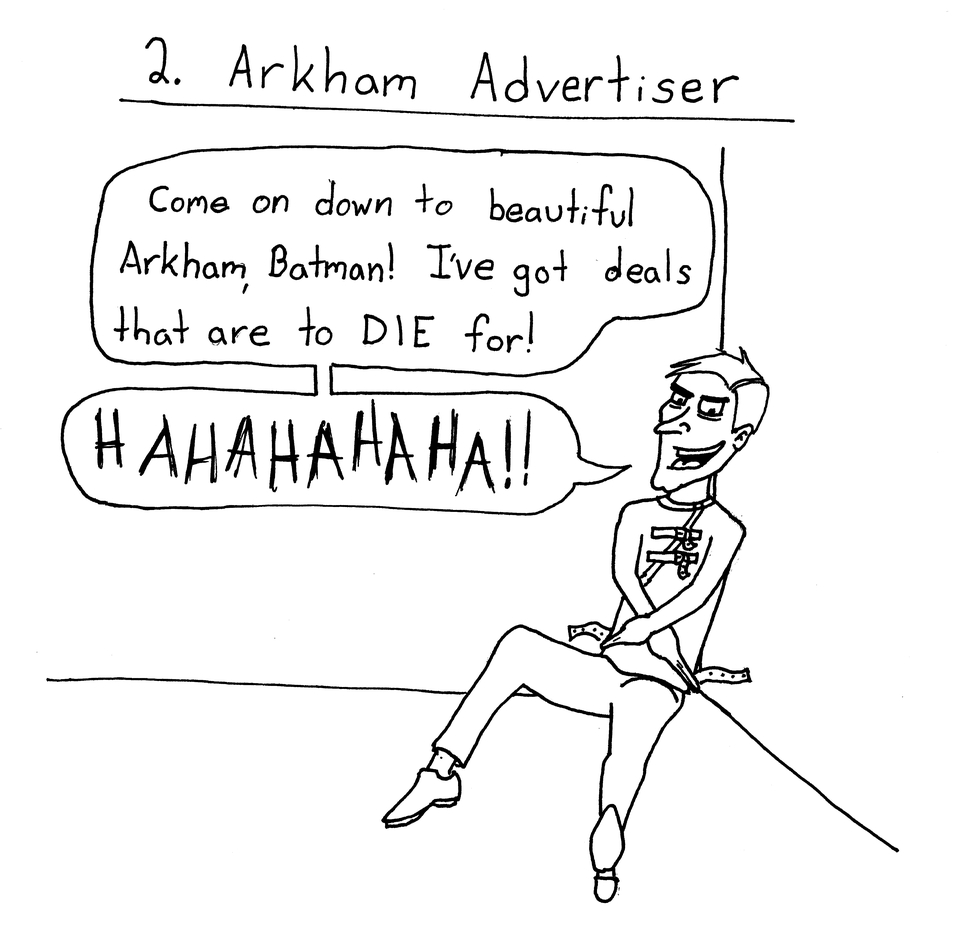 2. Arkham Advertiser
Come on down to beautiful
Arkham, Batman! I've got deals
that are to DIE for!
HAHAHAHAHA!!